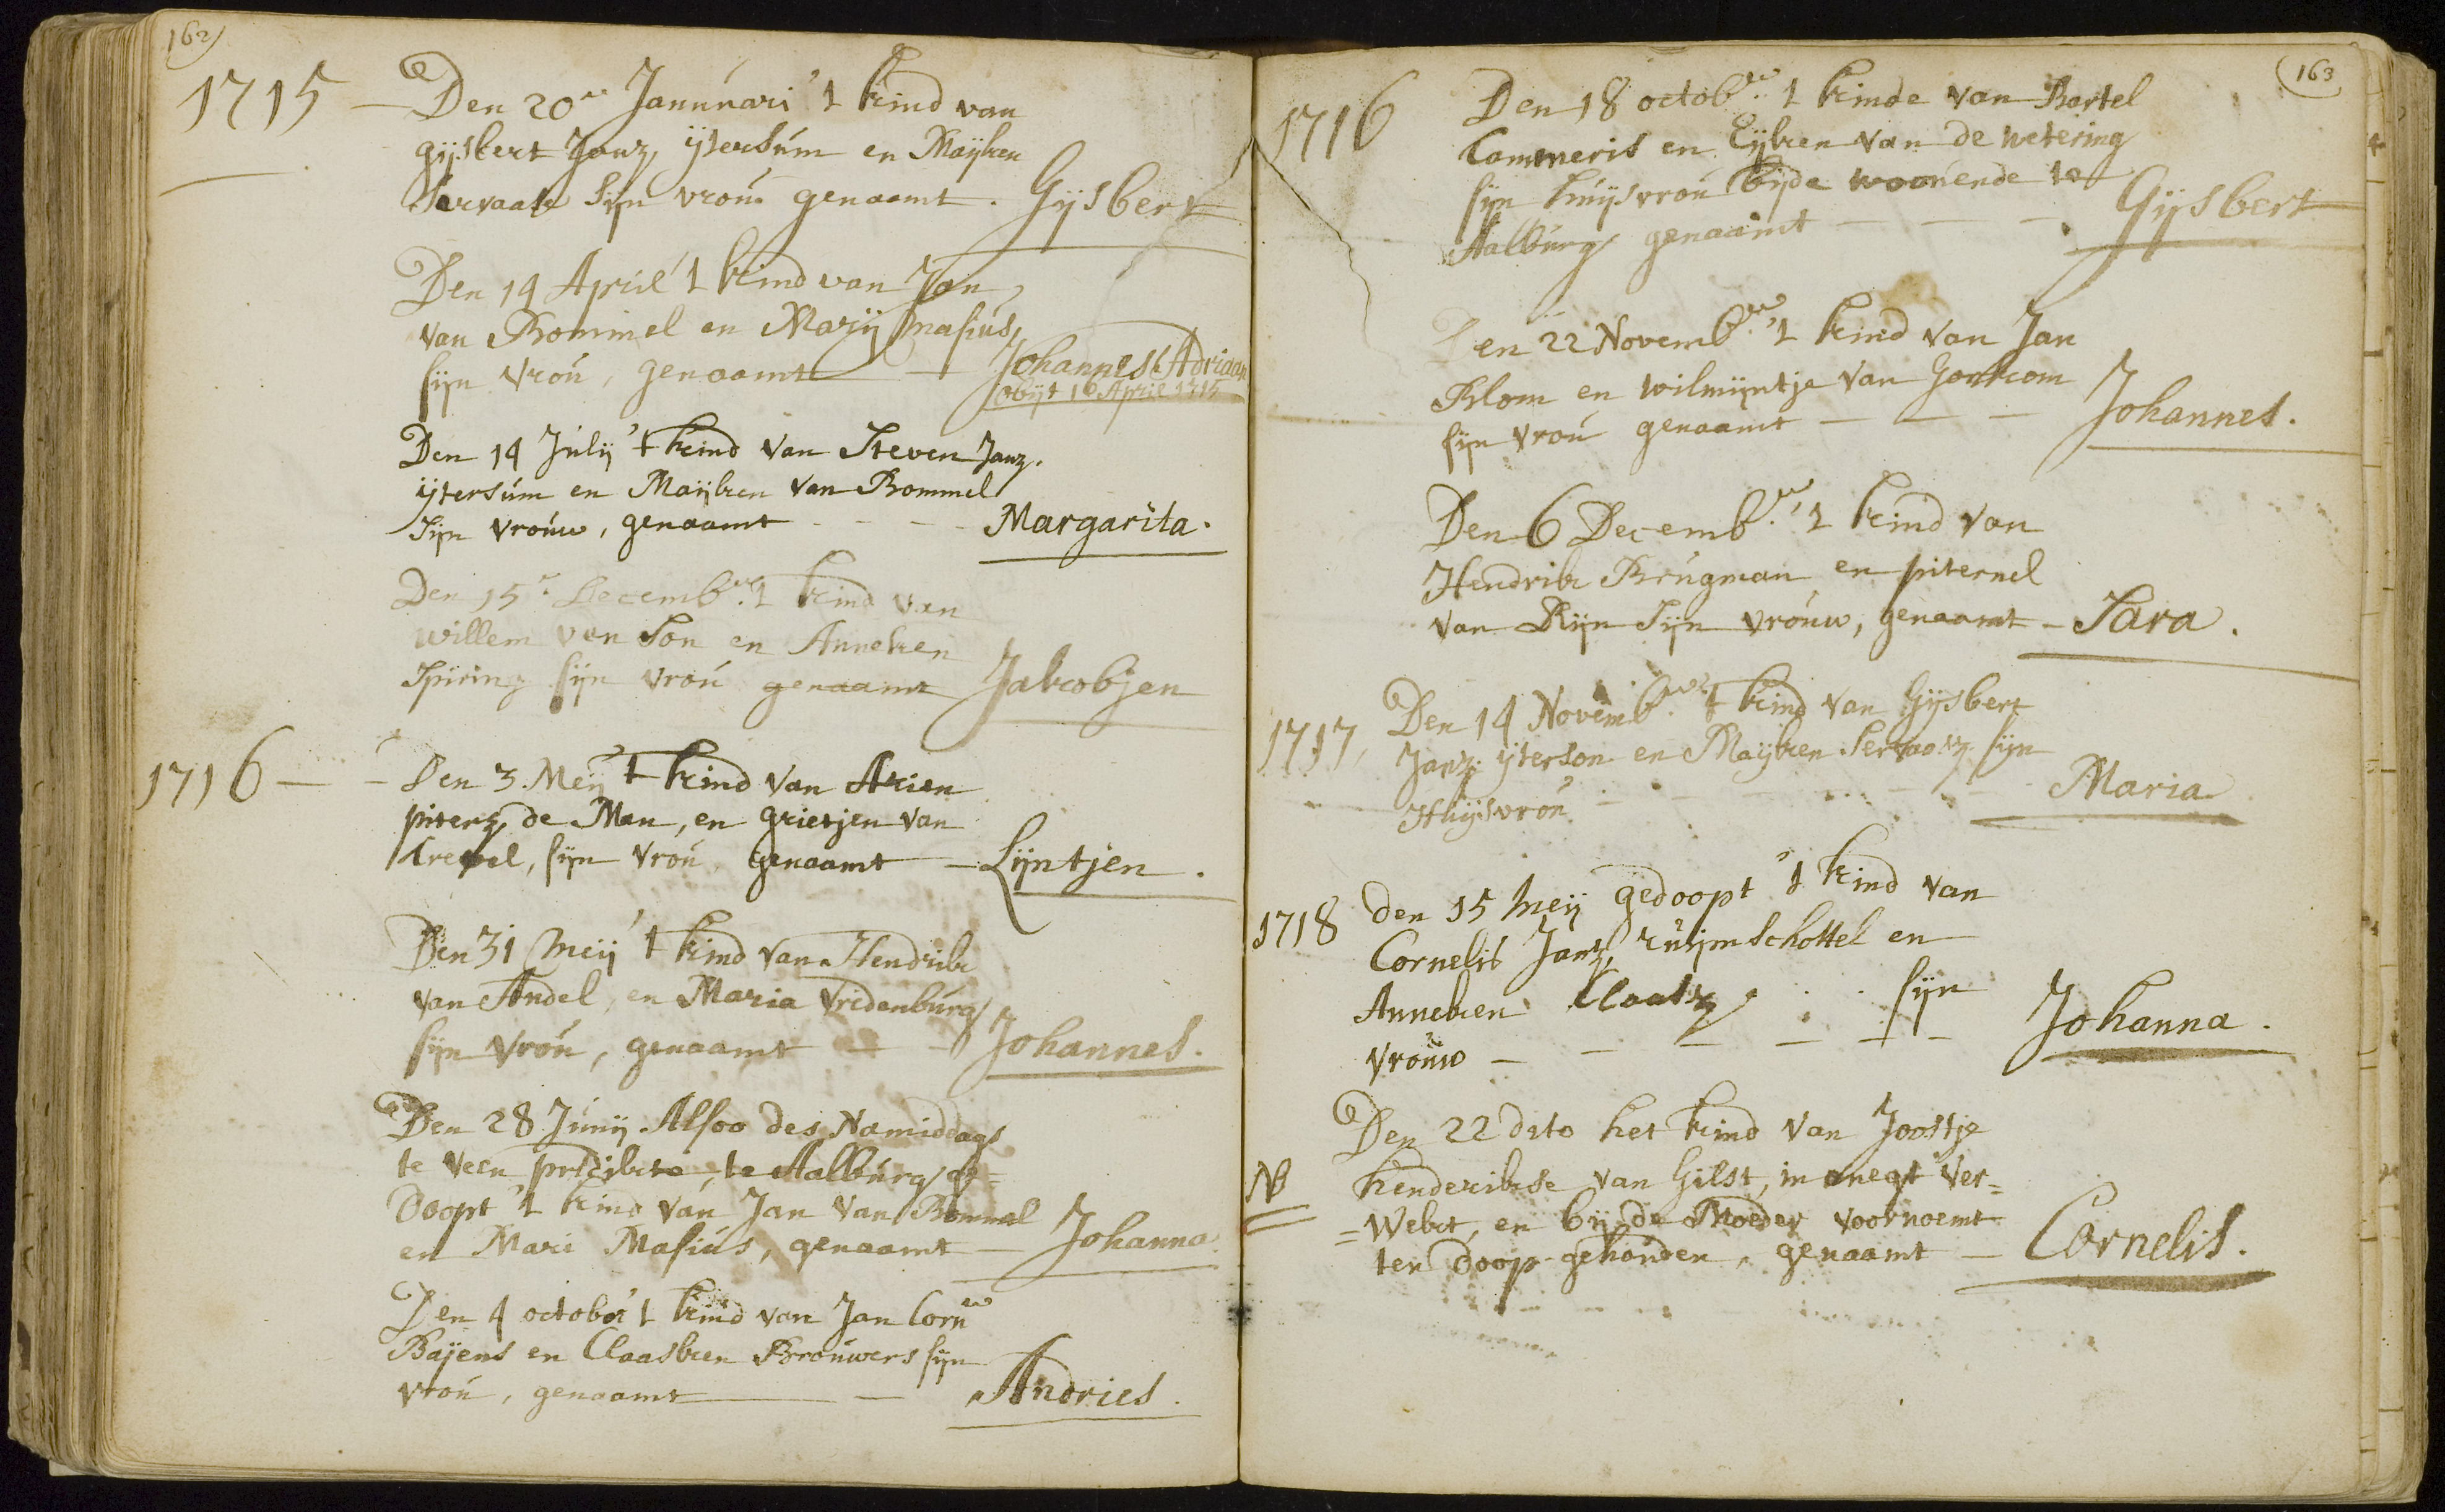 162
1715 — Den 20en Januuari 't kind van
gijsbert Janz, ijtersum en Maijken
Servaats Sijn vrou genaamt. Gijsbert
Den 14 April 't kind van Jan
van Bommel en Marij Masius,
sijn vrou, genaamt — Johannes Adriaan
obijt 16 April 1715
Den 14 Julij 't kind van Steven Janz.
ijtersum en Maijken van Bommel
Sijn vrouw, genaamt - - - Margarita.
Den 15e Decembr. 't kind van
willem van Son en Anneken
Spiring sijn vrou genaamt Jakobjen
1716 — Den 3. Meij 't kind van Arien
piterz, de Man, en grietjen van
sijn vrou, genaamt — Lijntjen.
Den 31 Meij 't kind van Hendrik
van Andel, en Maria Vredenburg
sijn vrou, genaamt — - Johannes.
Den 28 Junij. Alsoo des Namiddags
te veen predikte, te Aalburg ge=
doopt 't kind van Jan van Bommel
en Mari Masius, genaamt — Johanna.
Den 4 octobr 't kind van Jan Corn
Baijens en Claasken Brouwers sijn
vrou, genaamt — — Andries.
163
1716 Den 18 octobr. 't kinde van Bartel
Cammeris en Eijken van de wetering
sijn huijsvrou bijde woonende te
Aalburg genaamt — - - . Gijsbert
Den 22 Novembr. 't kind van Jan
Blom en wilmijntje van Gorkom
sijn vrou genaamt — — — Johannes.
Den 6 Decembr. 't kind van
Hendrik Brugman en piternel
van Rijn Sijn vrouw, genaamt - Sara.
1717, Den 14 Novembr. 't kind van Gijsbert
Janz. ijterson en Maijken Servaasz. sijn
Huijsvrou - - - - Maria
1718 den 15 Meij gedoopt 't kind van
Cornelis Janz, ruijmschottel en
Anneken Claasz . . sijn
vrouw — — — — — Johanna.
Den 22 dito het kind van Joostje
NB henderikse van Gilst, in onegt ver=
=wekt, en bij de Moeder voornoemt
ten doop gehouden, genaamt — Cornelis.